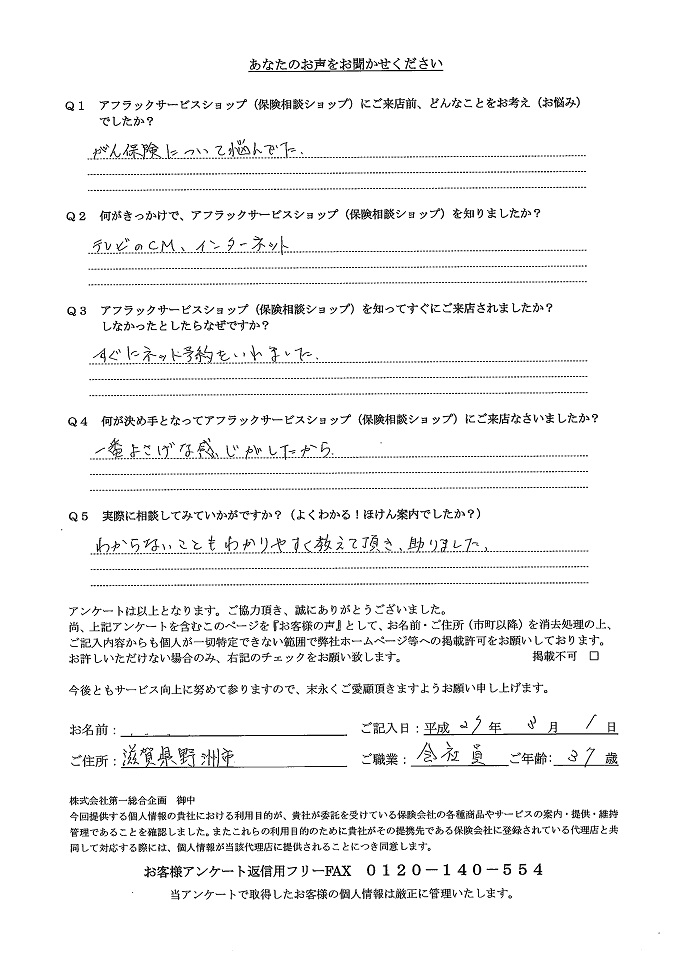 あなたのお声をお聞かせください
Q1 アフラックサービスショップ（保険相談ショップ）にご来店前、どんなことをお考え（お悩み）
でしたか？
がん保険について悩んでた.
Q2 何がきっかけで、アフラックサービスショップ（保険相談ショップ）を知りましたか？
テレビのCM、インターネット
Q3 アフラックサービスショップ（保険相談ショップ）を知ってすぐにご来店されましたか？
しなかったとしたらなぜですか？
すぐにネット予約をいれました.
Q4 何が決め手となってアフラックサービスショップ（保険相談ショップ）にご来店なさいましたか？
一番よさげな感じがしたから
Q5 実際に相談してみていかがですか？（よくわかる！ほけん案内でしたか？）
わからないこともわかりやすく教えて頂き、助りました、
アンケートは以上となります。ご協力頂き、誠にありがとうございました。
尚、上記アンケートを含むこのページを『お客様の声』として、お名前・ご住所（市町以降）を消去処理の上、
ご記入内容からも個人が一切特定できない範囲で弊社ホームページ等への掲載許可をお願いしております。
お許しいただけない場合のみ、右記のチェックをお願い致します。 掲載不可 □
今後ともサービス向上に努めて参りますので、末永くご愛顧頂きますようお願い申し上げます。
お名前： ご記入日：平成 29 年 8 月 1 日
ご住所：滋賀県野洲市 ご職業：会社員 ご年齢：37 歳
株式会社第一総合企画 御中
今回提供する個人情報の貴社における利用目的が、貴社が委託を受けている保険会社の各種商品やサービスの案内・提供・維持
管理であることを確認しました。またこれらの利用目的のために貴社がその提携先である保険会社に登録されている代理店と共
同して対応する際には、個人情報が当該代理店に提供されることにつき同意します。
お客様アンケート返信用フリーFAX 0120－140－554
当アンケートで取得したお客様の個人情報は厳正に管理いたします。